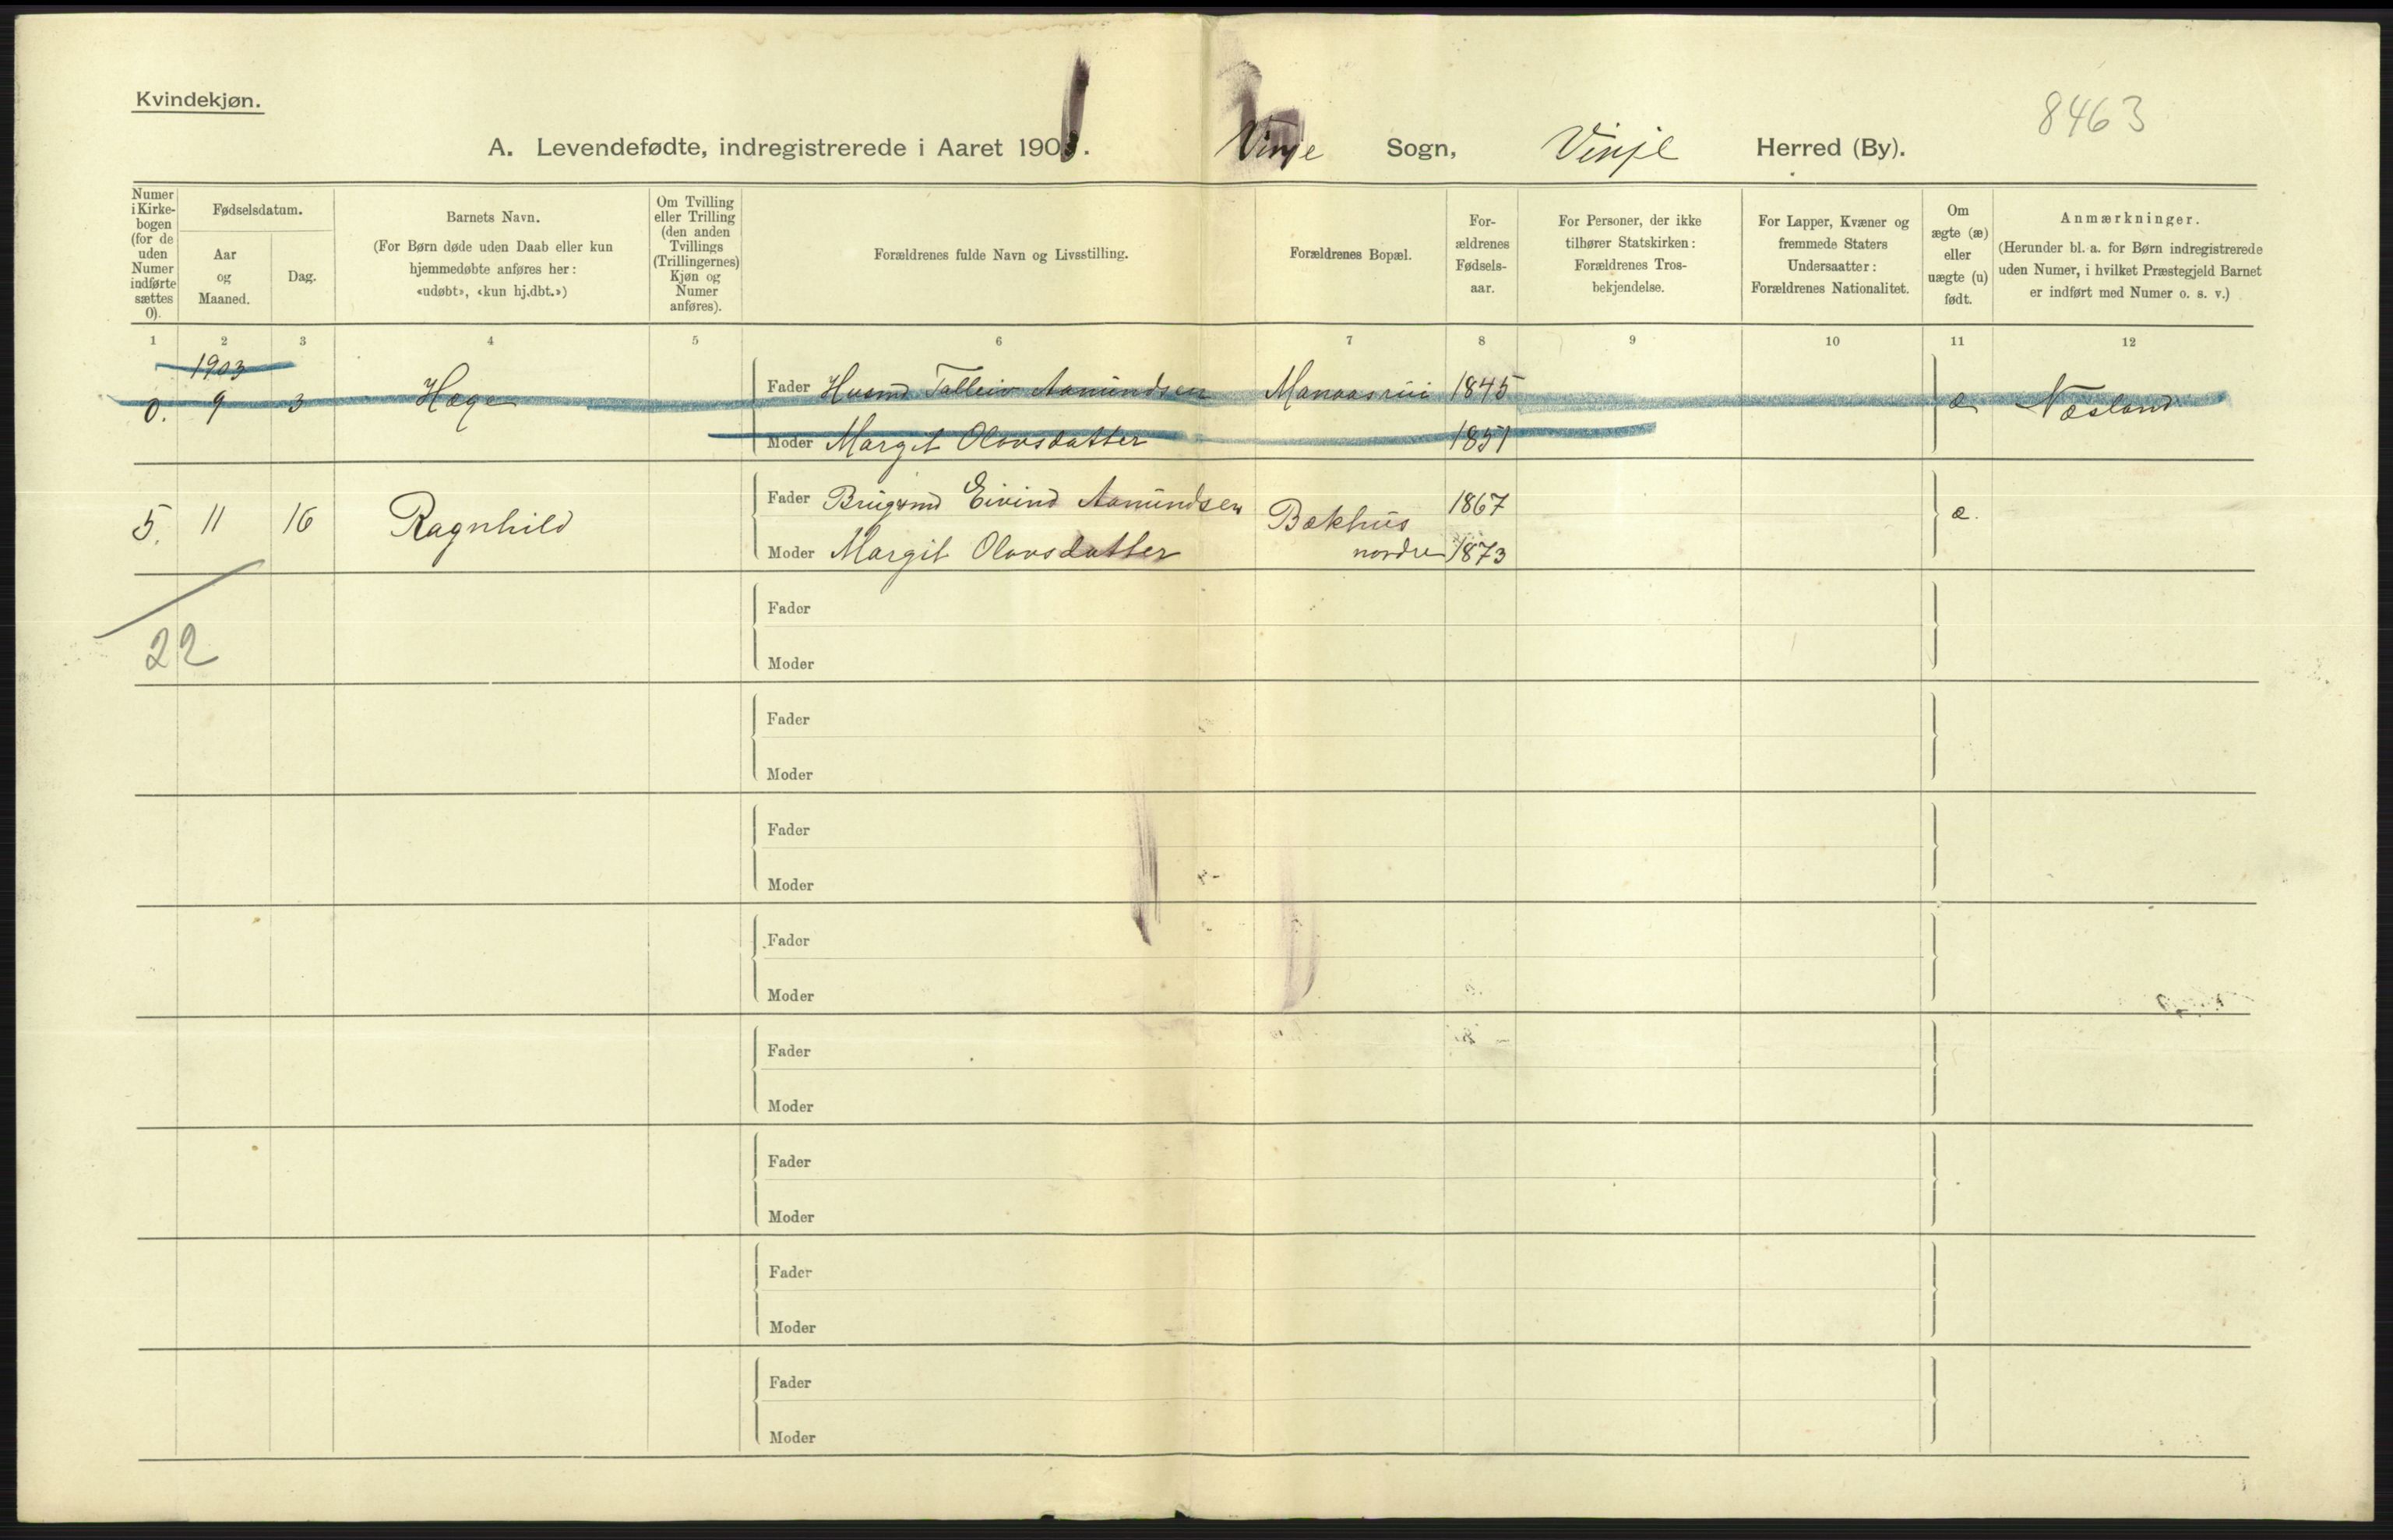 Kvindekjøn.
8463
A. Levendefødte, indregistrerede i Aaret 1903. Vinje Sogn, Vinje Herred (By).
Numer i Kirke-bogen (for de uden Numer indførte sættes 0).
Fødselsdatum.
Aar og Maaned.
Dag.
Barnets Navn.
(For Børn døde uden Daab eller kun
hjemmedøbte anføres her:
«udøbt», «kun hj.dbt.»)
Om Tvilling
eller Trilling
(den anden
Tvillings
(Trillingernes)
Kjøn og
Numer
anføres).
Forældrenes fulde Navn og Livsstilling.
Forældrenes Bopæl.
For-
ældrenes
Fødsels-
aar.
For Personer, der ikke
tilhører Statskirken:
Forældrenes Tros-
bekjendelse.
For Lapper, Kvæner og
fremmede Staters
Undersaatter:
Forældrenes Nationalitet.
Om
ægte (æ)
eller
uægte (u)
født.
Anmærkninger.
(Herunder bl. a. for Børn indregistrerede
uden Numer, i hvilket Præstegjeld Barnet
er indført med Numer o. s. v.)
1 2 3 4 5 6 7 8 9 10 11 12
1903
0. 9 3 Hæge Fader Husmd Talleiv Aamundsen Manaasrui 1845 æ Næsland
Moder Margit Olavsdatter 1851
5. 11 16 Ragnhild Fader Brugsmd Eivind Aamundsen Bækhus 1867 æ.
Moder Margit Olavsdatter nordre 1873
22
Fader
Moder
Fader
Moder
Fader
Moder
Fader
Moder
Fader
Moder
Fader
Moder
Fader
Moder
Fader
Moder